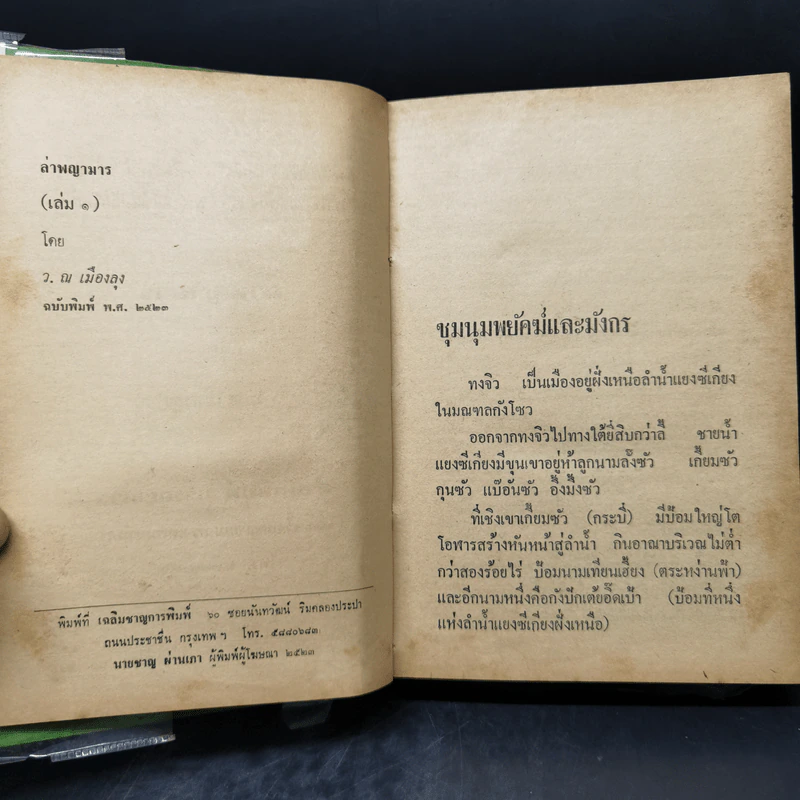 ล่าพญามาร
(เล่ม ๑)
โดย
ว. ณ เมืองลุง
ฉบับพิมพ์ พ.ศ. ๒๕๒๓
พิมพ์ที่ เฉลิมชาญการพิมพ์ ๖๐ ซอยนันทวัฒน์ ริมคลองประปา
ถนนประชาชื่น กรุงเทพ ฯ โทร. ๕๘๘๐๖๘๓
นายชาญ ผ่านเภา ผู้พิมพ์ผู้โฆษณา ๒๕๒๓
ชุมนุมพยัคฆ์และมังกร
ทงจิว เป็นเมืองอยู่ฝั่งเหนือลำน้ำแยงซีเกียง
ในมณฑลกังโซว
ออกจากทงจิวไปทางใต้ยี่สิบกว่าลี้ ชายน้ำ
แยงซีเกียงมีขุนเขาอยู่ห้าลูกนามลั้งซัว เกี้ยมซัว
กุนซัว แบ๊อันซัว อึ้งมึ้งซัว
ที่เชิงเขาเกี้ยมซัว (กระบี่) มีป้อมใหญ่โต
โอฬารสร้างหันหน้าสู่ลำน้ำ กินอาณาบริเวณไม่ต่ำ
กว่าสองร้อยไร่ ป้อมนามเทียนเฮี้ยง (ตระหง่านฟ้า)
และอีกนามหนึ่งคือกังปักเต้ยอิดเป้า (ป้อมที่หนึ่ง
แห่งลำน้ำแยงซีเกียงฝั่งเหนือ)